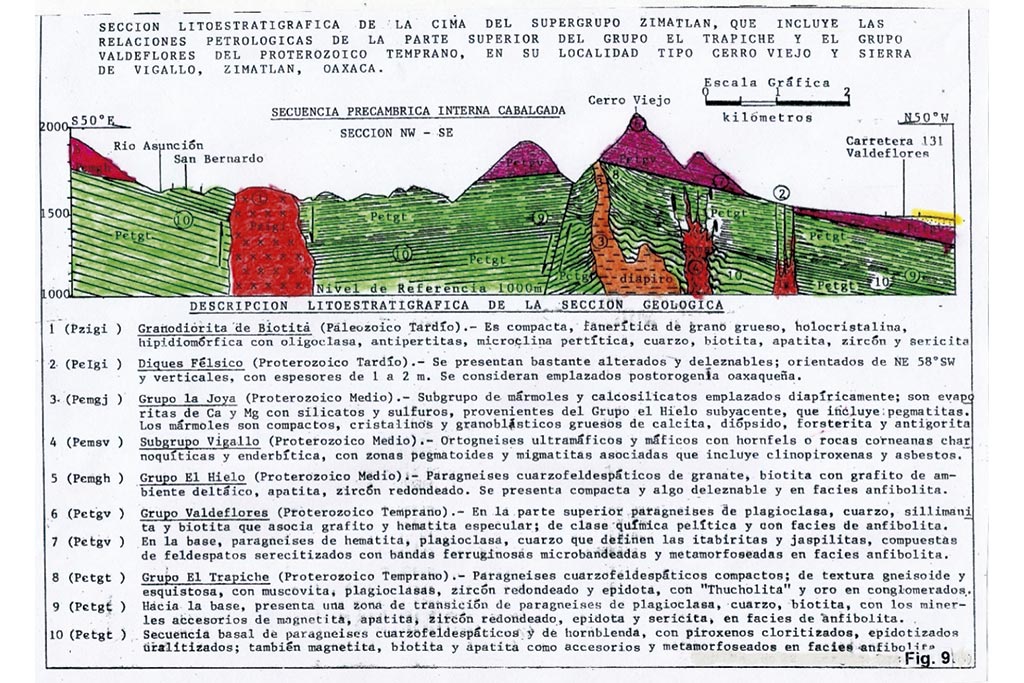 SECCION LITOESTRATIGRAFICA DE LA CIMA DEL SUPERGRUPO ZIMATLAN, QUE INCLUYE LAS
RELACIONES PETROLOGICAS DE LA PARTE SUPERIOR DEL GRUPO EL TRAPICHE Y EL GRUPO
VALDEFLORES DEL PROTEROZOICO TEMPRANO, EN SU LOCALIDAD TIPO CERRO VIEJO Y SIERRA
DE VIGALLO, ZIMATLAN, OAXACA.
Escala Gráfica
0 1 2
kilómetros
Cerro Viejo
SECUENCIA PRECAMBRICA INTERNA CABALGADA
SECCION NW - SE
2000
S50°E
N50°W
Río Asunción
San Bernardo
Carretera 131
Valdeflores
Petgv
2
8
1500
10
Petgt
Pzigi
Petgt
9
Petgt
Petgt
3
10
Petgt
Petgt
diapiro
10
Petgt
10
9
1000
Nivel de Referencia 1000m
DESCRIPCION LITOESTRATIGRAFICA DE LA SECCION GEOLOGICA
1 (Pzigi ) Granodiorita de Biotita (Páleozoico Tardío).- Es compacta, fanerítica de grano grueso, holocristalina,
hipidiomórfica con oligoclasa, antipertitas, microclina pertítica, cuarzo, biotita, apatita, zircón y sericita
2 (PeIgi ) Diques Félsico (Proterozoico Tardío).- Se presentan bastante alterados y deleznables; orientados de NE 58°SW
y verticales, con espesores de 1 a 2 m. Se consideran emplazados postorogenia oaxaqueña.
3 (Pemgj ) Grupo la Joya (Proterozoico Medio).- Subgrupo de mármoles y calcosilicatos emplazados diapíricamente; son evapo
ritas de Ca y Mg con silicatos y sulfuros, provenientes del Grupo el Hielo subyacente, que incluye pegmatitas.
Los mármoles son compactos, cristalinos y granoblásticos gruesos de calcita, diópsido, forsterita y antigorita
4 (Pemsv ) Subgrupo Vigallo (Proterozoico Medio).- Ortogneises ultramáficos y máficos con hornfels o rocas corneanas char
noquíticas y enderbítica, con zonas pegmatoides y migmatitas asociadas que incluye clinopiroxenas y asbestos.
5 (Pemgh ) Grupo El Hielo (Proterozoico Medio).- Paragneises cuarzofeldespáticos de granate, biotita con grafito de am-
biente deltáico, apatita, zircón redondeado. Se presenta compacta y algo deleznable y en facies anfibolita.
6 (Petgv ) Grupo Valdeflores (Proterozoico Temprano).- En la parte superior paragneises de plagioclasa, cuarzo, sillimani
ta y biotita que asocia grafito y hematita especular; de clase química pelítica y con facies de anfibolita.
7 (Petgv ) En la base, paragneises de hematita, plagioclasa, cuarzo que definen las itabiritas y jaspilitas, compuestas
de feldespatos serecitizados con bandas ferruginosas microbandeadas y metamorfoseadas en facies anfibolita.
8 (Petgt ) Grupo El Trapiche (Proterozoico Temprano).- Paragneises cuarzofeldespáticos compactos; de textura gneisoide y
esquistosa, con muscovita, plagioclasas, zircón redondeado y epidota, con "Thucholita" y oro en conglomerados.
9 (Petgt ) Hacia la base, presenta una zona de transición de paragneises de plagioclasa, cuarzo, biotita, con los miner-
les accesorios de magnetita, apatita, zircón redondeado, epidota y sericita, en facies de anfibolita.
10 (Petgt ) Secuencia basal de paragneises cuarzofeldespáticos y de hornblenda, con piroxenos cloritizados, epidotizados
uralitizados; también magnetita, biotita y apatita como accesorios y metamorfoseados en facies anfibolita
Fig. 9.